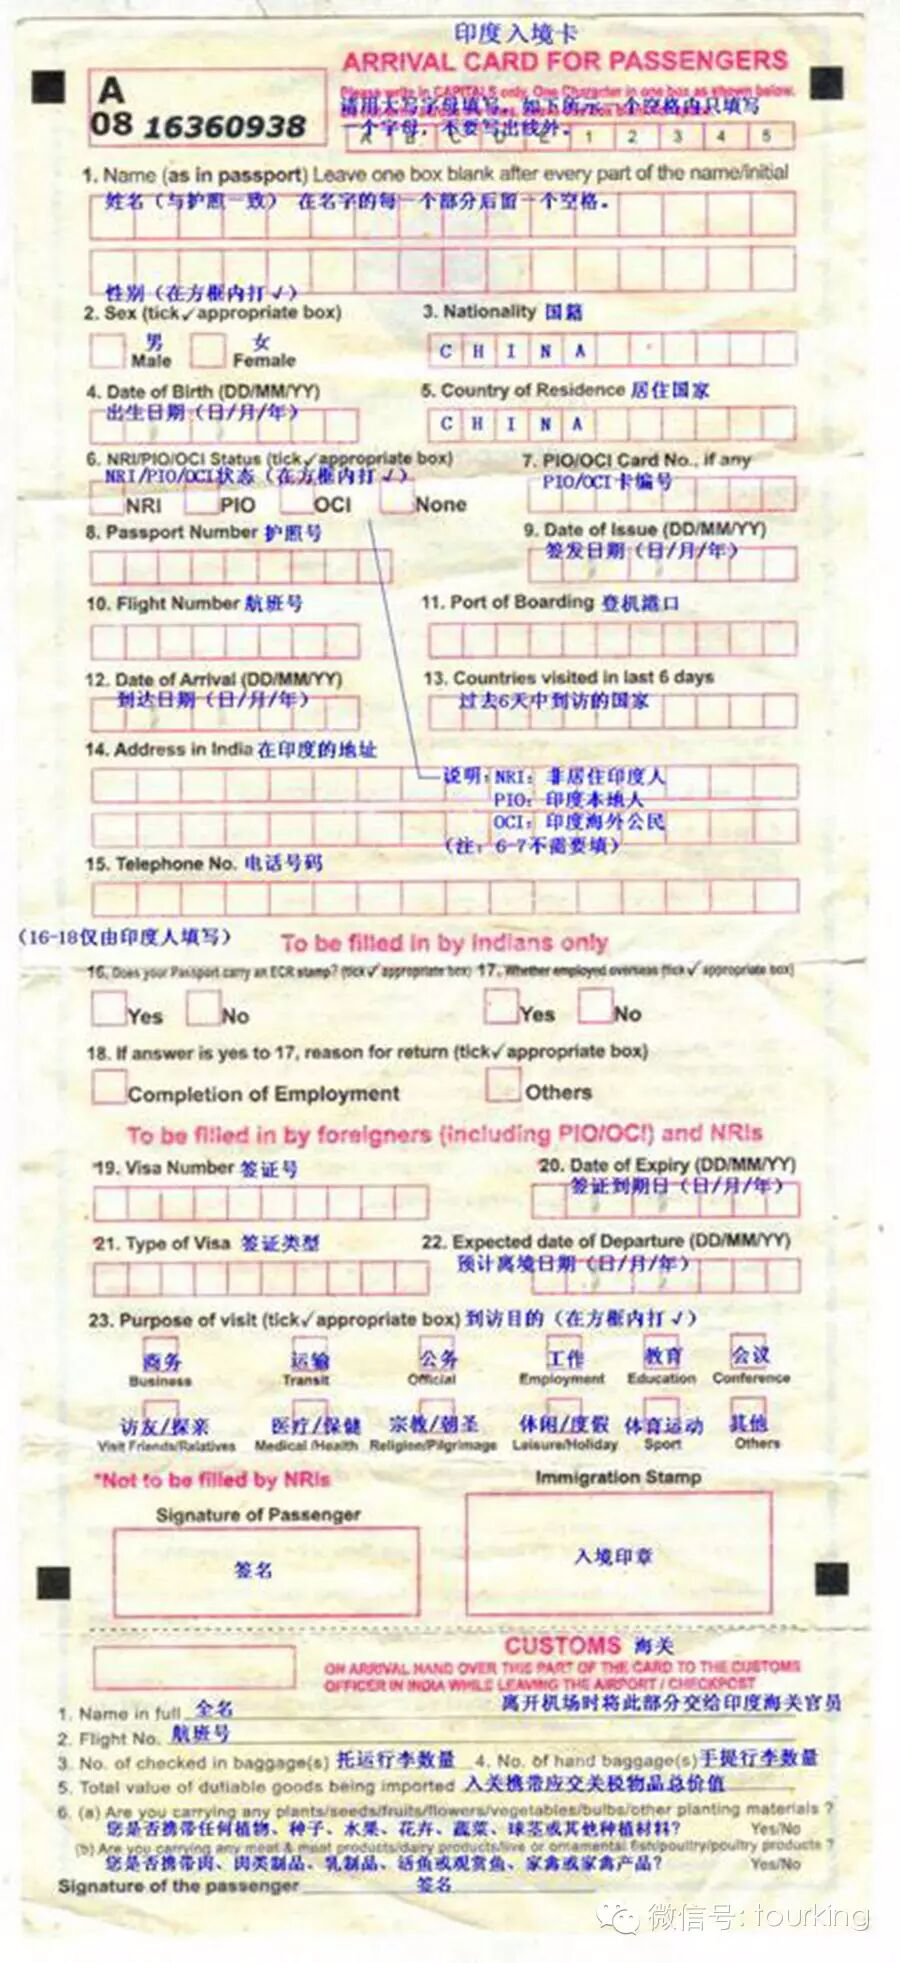 印度入境卡
ARRIVAL CARD FOR PASSENGERS
A
08 16360938
Please write in CAPITALS only. One Character in one box as shown below.
请用大写字母填写。如下所示一个空格内只填写
一个字母，不要写出线外。
A B C D E 1 2 3 4 5
1. Name (as in passport) Leave one box blank after every part of the name/initial
姓名（与护照一致） 在名字的每一个部分后留一个空格。
性别（在方框内打√）
2. Sex (tick✓appropriate box)
3. Nationality 国籍
男 女
Male Female
C H I N A
4. Date of Birth (DD/MM/YY)
5. Country of Residence 居住国家
出生日期（日/月/年）
C H I N A
6. NRI/PIO/OCI Status (tick✓appropriate box)
7. PIO/OCI Card No., if any
NRI/PIO/OCI状态（在方框内打√）
PIO/OCI卡编号
NRI PIO OCI None
8. Passport Number 护照号
9. Date of Issue (DD/MM/YY)
签发日期（日/月/年）
10. Flight Number 航班号
11. Port of Boarding 登机港口
12. Date of Arrival (DD/MM/YY)
13. Countries visited in last 6 days
到达日期（日/月/年）
过去6天中到访的国家
14. Address in India 在印度的地址
说明：NRI：非居住印度人
PIO：印度本地人
OCI：印度海外公民
（注：6-7不需要填）
15. Telephone No. 电话号码
（16-18仅由印度人填写）
To be filled in by Indians only
16. Does your Passport carry an ECR stamp? (tick✓appropriate box) 17. Whether employed overseas (tick✓appropriate box)
Yes No Yes No
18. If answer is yes to 17, reason for return (tick✓appropriate box)
Completion of Employment Others
To be filled in by foreigners (including PIO/OCI) and NRIs
*19. Visa Number 签证号
*20. Date of Expiry (DD/MM/YY)
签证到期日（日/月/年）
*21. Type of Visa 签证类型
22. Expected date of Departure (DD/MM/YY)
预计离境日期（日/月/年）
23. Purpose of visit (tick✓appropriate box) 到访目的（在方框内打√）
商务 运输 公务 工作 教育 会议
Business Transit Official Employment Education Conference
访友/探亲 医疗/保健 宗教/朝圣 休闲/度假 体育运动 其他
Visit Friends/Relatives Medical /Health Religion/Pilgrimage Leisure/Holiday Sport Others
*Not to be filled by NRIs
Immigration Stamp
Signature of Passenger
签名
入境印章
CUSTOMS 海关
ON ARRIVAL HAND OVER THIS PART OF THE CARD TO THE CUSTOMS
OFFICER IN INDIA WHILE LEAVING THE AIRPORT / CHECKPOST
离开机场时将此部分交给印度海关官员
1. Name in full 全名
2. Flight No. 航班号
3. No. of checked in baggage(s) 托运行李数量 4. No. of hand baggage(s) 手提行李数量
5. Total value of dutiable goods being imported 入关携带应交关税物品总价值
6. (a) Are you carrying any plants/seeds/fruits/flowers/vegetables/bulbs/other planting materials ?
您是否携带任何植物、种子、水果、花卉、蔬菜、球茎或其他种植材料？ Yes/No
(b) Are you carrying any meat & meat products/dairy products/live or ornamental fish/poultry/poultry products ?
您是否携带肉、肉类制品、乳制品、活鱼或观赏鱼、家禽或家禽产品？ Yes/No
Signature of the passenger 签名
微信号: tourking